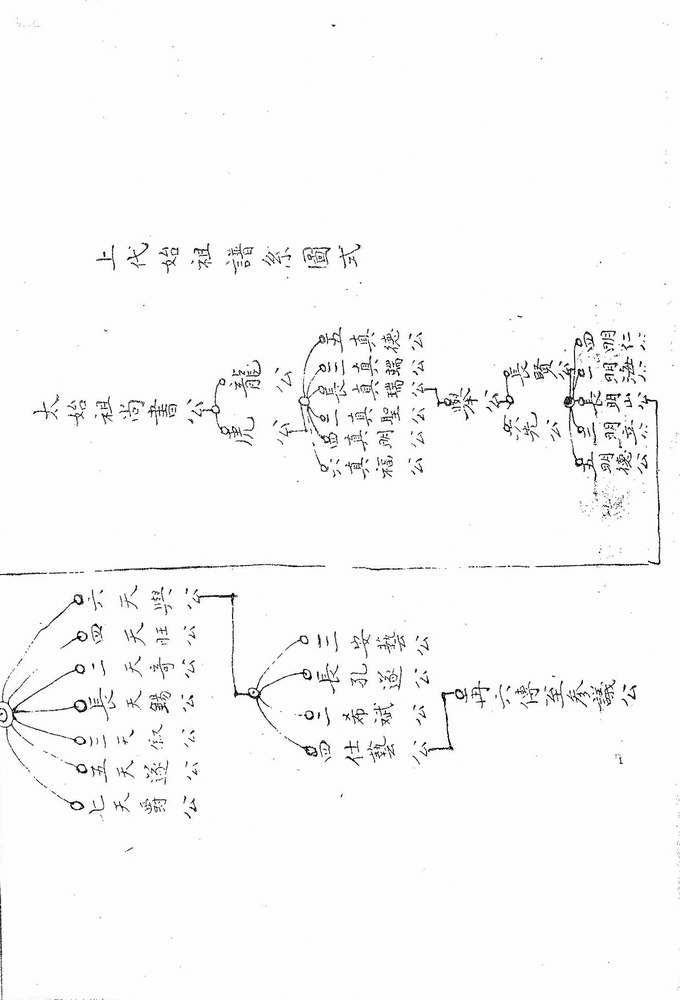 上代始祖譜系圖式
太始祖尚書公
龍公
虎公
五真德公
三真瑞公
長真瑞公
二真聖公
四真明公
六真福公
舉公
長賢公
先公
四明仁公
二明海公
長明山公
三明立公
五明德公
六天與公
四天旺公
二天奇公
長天錫公
三天叙公
五天遂公
七天爵公
三安藝公
長孔遂公
二希斌公
四仕藝公
再六傳至參議公